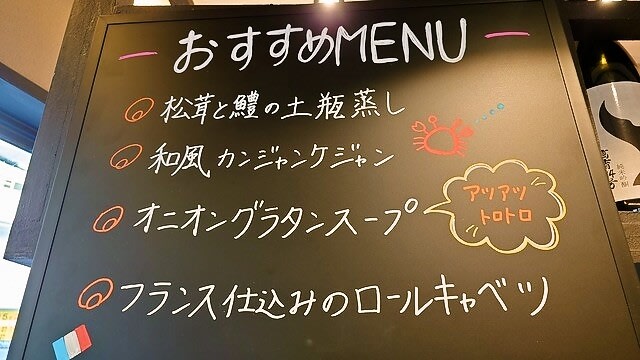 おすすめMENU
松茸と鱧の土瓶蒸し
和風カンジャンケジャン
オニオングラタンスープ
アツアツ
トロトロ
フランス仕込みのロールキャベツ
純米吟醸